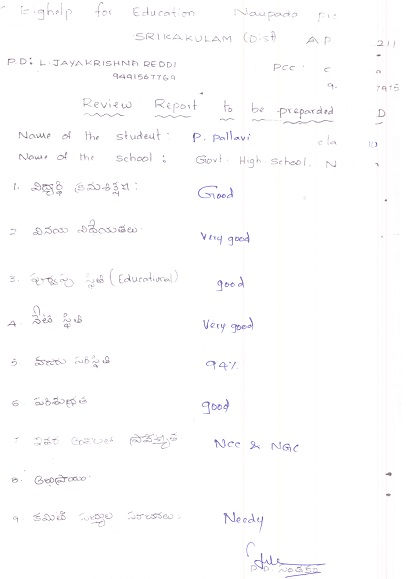 Eighelp for Education Naupada
SRIKAKULAM (Dist) A P
P.D: L. JAYAKRISHNA REDDI PCC
9441567769
Review Report to be preparded
Name of the student: P. Pallavi cla 10
Name of the school: Govt. High School. N
1. విద్యార్థి క్రమశిక్షణ: Good
2 వినయ విధేయతలు. Very good
3. పూర్వపు స్థితి (Educational) good
4 నేటి స్థితి Very good
5 హాజరు పరిస్థితి 94%
6 పరిశుభ్రత good
7 ఇతర NCC & NGC
8. అభిప్రాయం
9. కమిటీ సభ్యుల సూచనలు. Needy